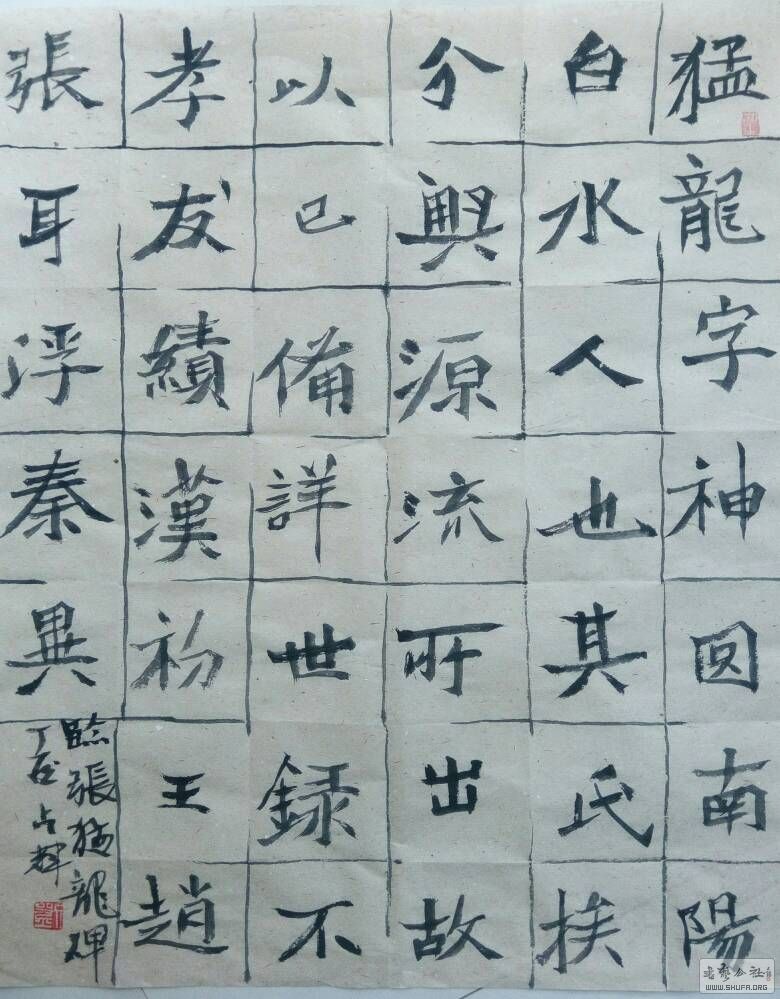 猛龍字神囧南陽
白水人也其氏族
分興源流所出故
以已備詳世録不
孝友績漢初王趙
張耳浮秦異
臨張猛龍碑
丁酉占輝
书艺公社
WWW.SHUFA.ORG